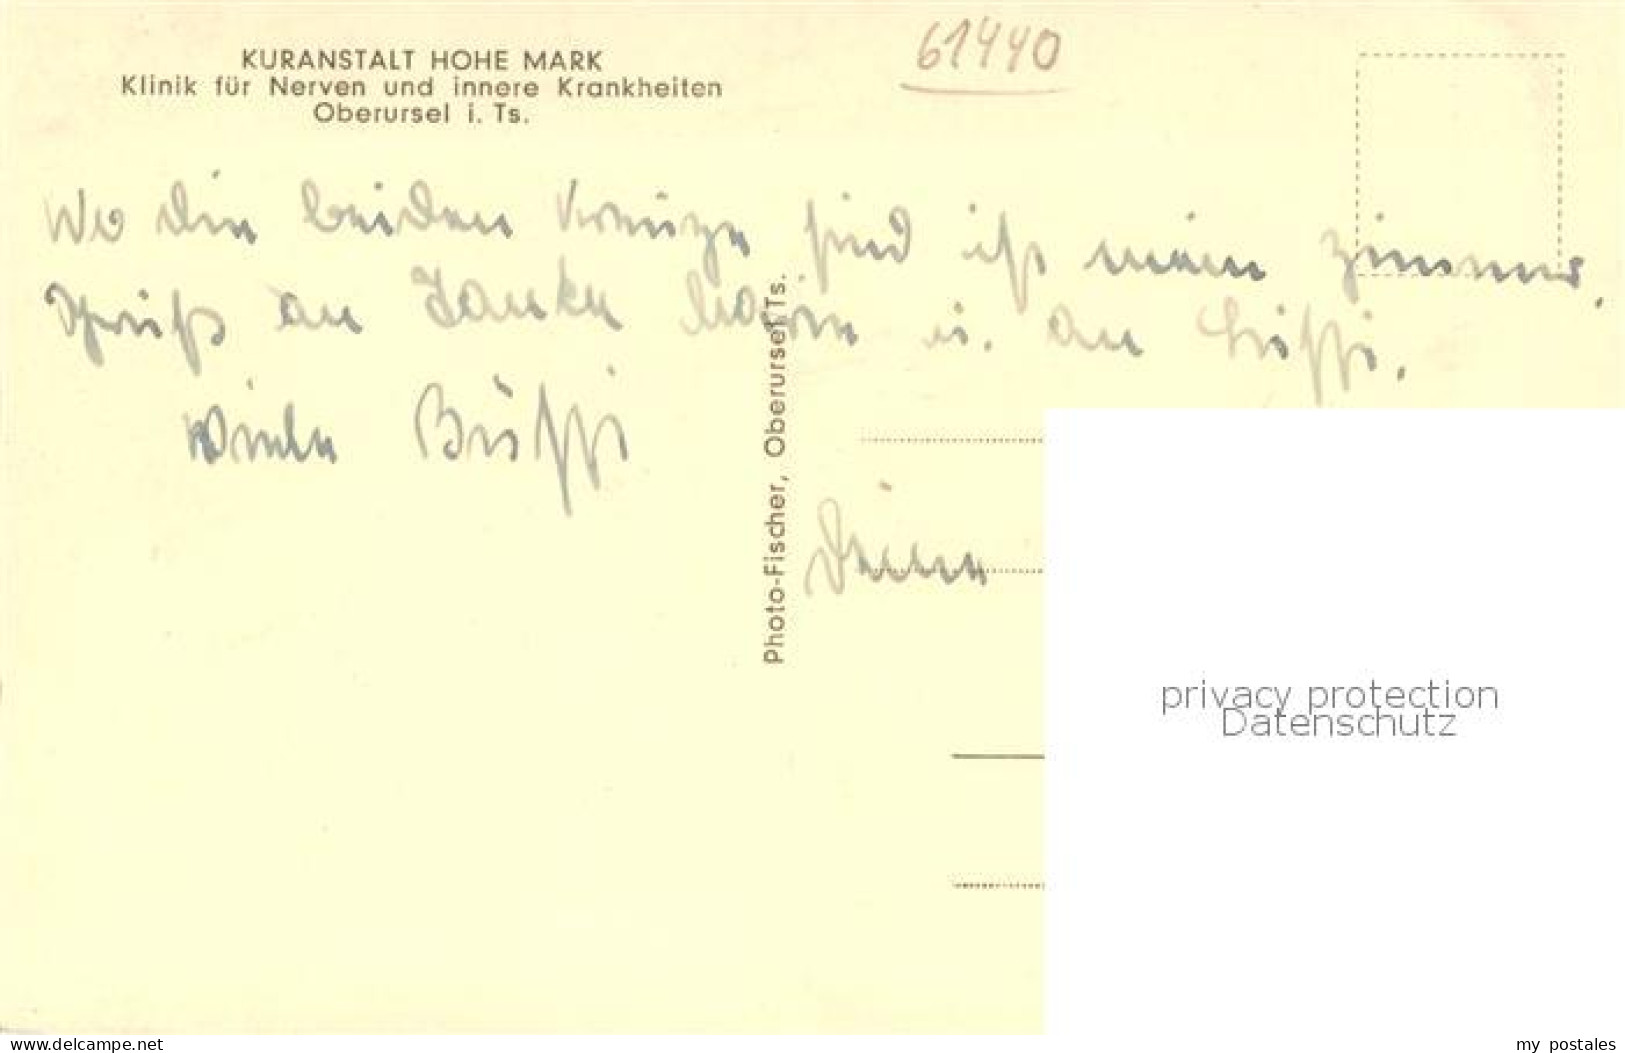 KURANSTALT HOHE MARK
Klinik für Nerven und innere Krankheiten
Oberursel i. Ts.
61440
Wo die beiden Kreuze sind ist mein Zimmer.
Gruß an Tante u. an
Viele Bussi
Deine
Photo-Fischer, Oberursel Ts.
privacy protection
Datenschutz
delcampe.net
my postales